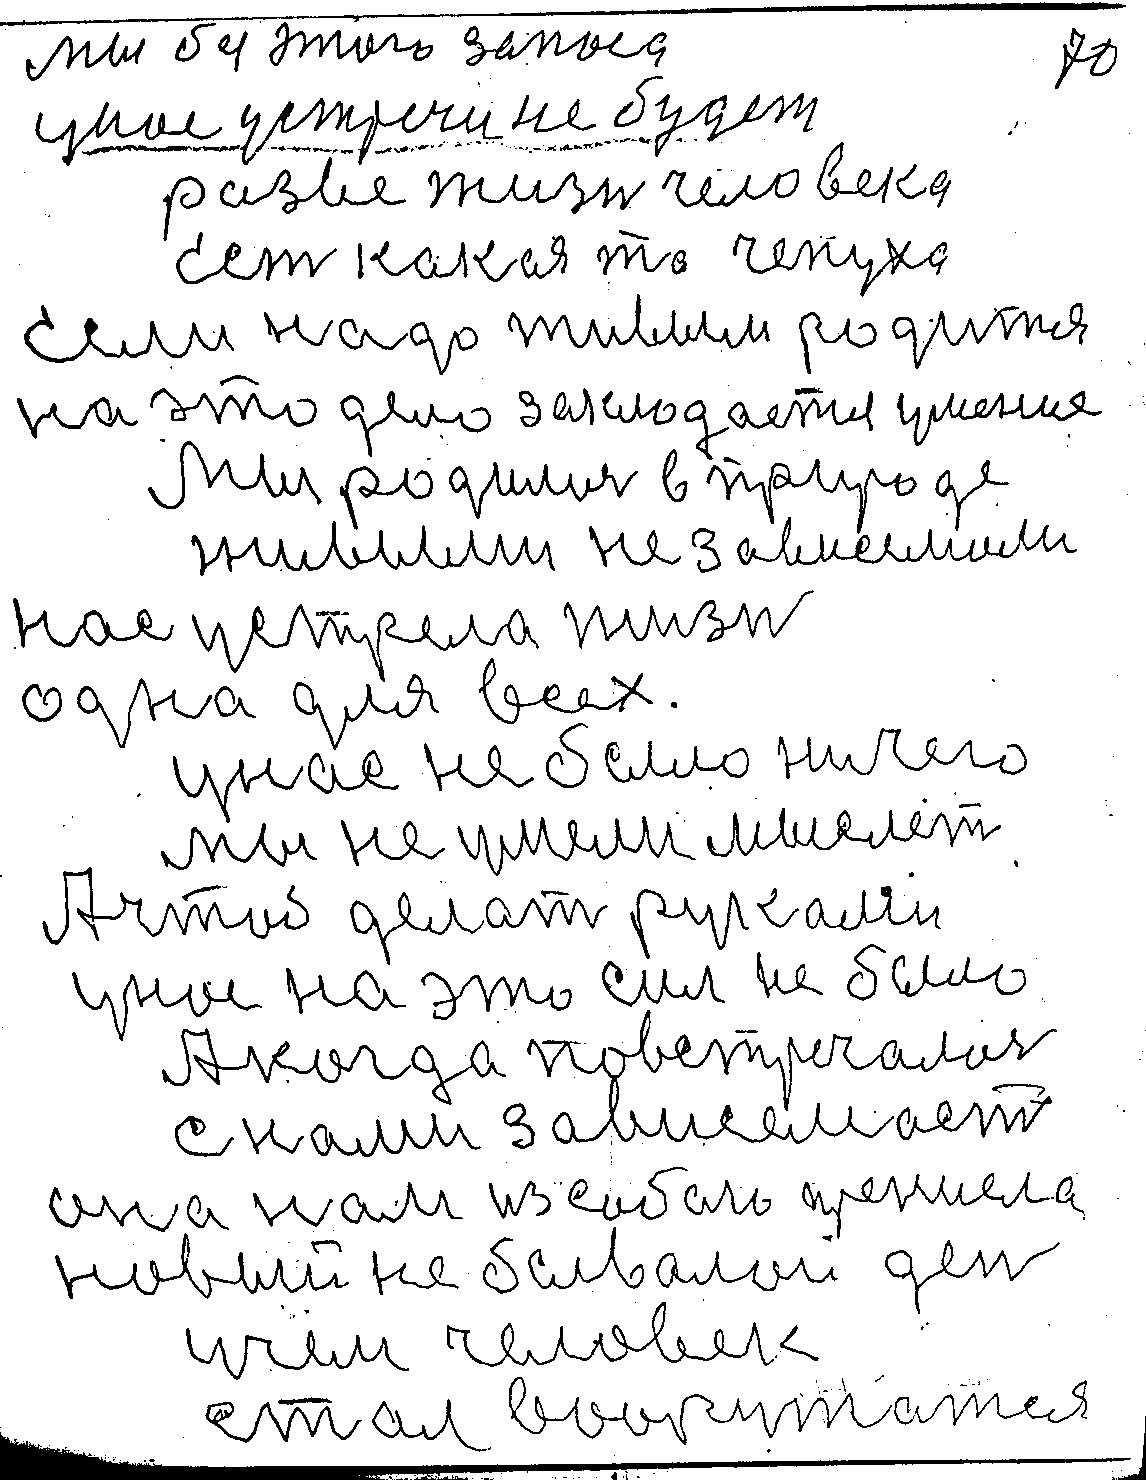 мы бы этого запоса 70
унас устречи не будет
разве жизн человека
Ест какая то чепуха
Если надо живым родится
на это дело закладается умения
Мы родилис в природе
живыми не зависемоми
нас устрела жизн
одна для всех.
унас не было ничего
мы не умели мыслет
А чтоб делат руками
унас на это сил не было
А когда повстречалис
с нами зависемост
она нам из собою принисла
новый не бывалой ден
учем человек
стал вооружатся